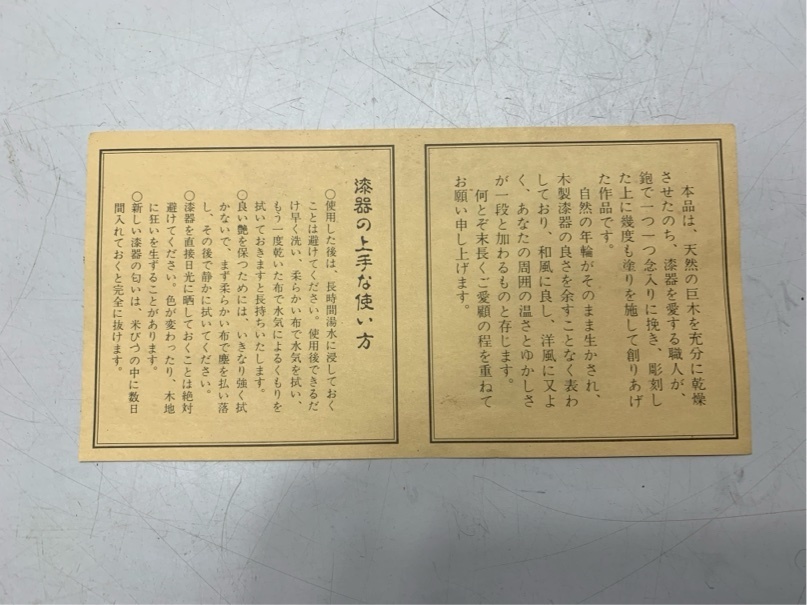 本品は、天然の巨木を充分に乾燥
させたのち、漆器を愛する職人が、
鉋で一つ一つ念入りに挽き、彫刻し
た上に幾度も塗りを施して創りあげ
た作品です。
自然の年輪がそのまま生かされ、
木製漆器の良さを余すことなく表わ
しており、和風に良し、洋風に又よ
く、あなたの周囲の温さとゆかしさ
が一段と加わるものと存じます。
何とぞ末長くご愛顧の程を重ねて
お願い申し上げます。
漆器の上手な使い方
○使用した後は、長時間湯水に浸しておく
ことは避けてください。使用後できるだ
け早く洗い、柔らかい布で水気を拭い、
もう一度乾いた布で水気によるくもりを
拭いておきますと長持ちいたします。
○良い艶を保つためには、いきなり強く拭
かないで、まず柔らかい布で塵を払い落
し、その後で静かに拭いてください。
○漆器を直接日光に晒しておくことは絶対
避けてください。色が変わったり、木地
に狂いを生ずることがあります。
○新しい漆器の匂いは、米びつの中に数日
間入れておくと完全に抜けます。